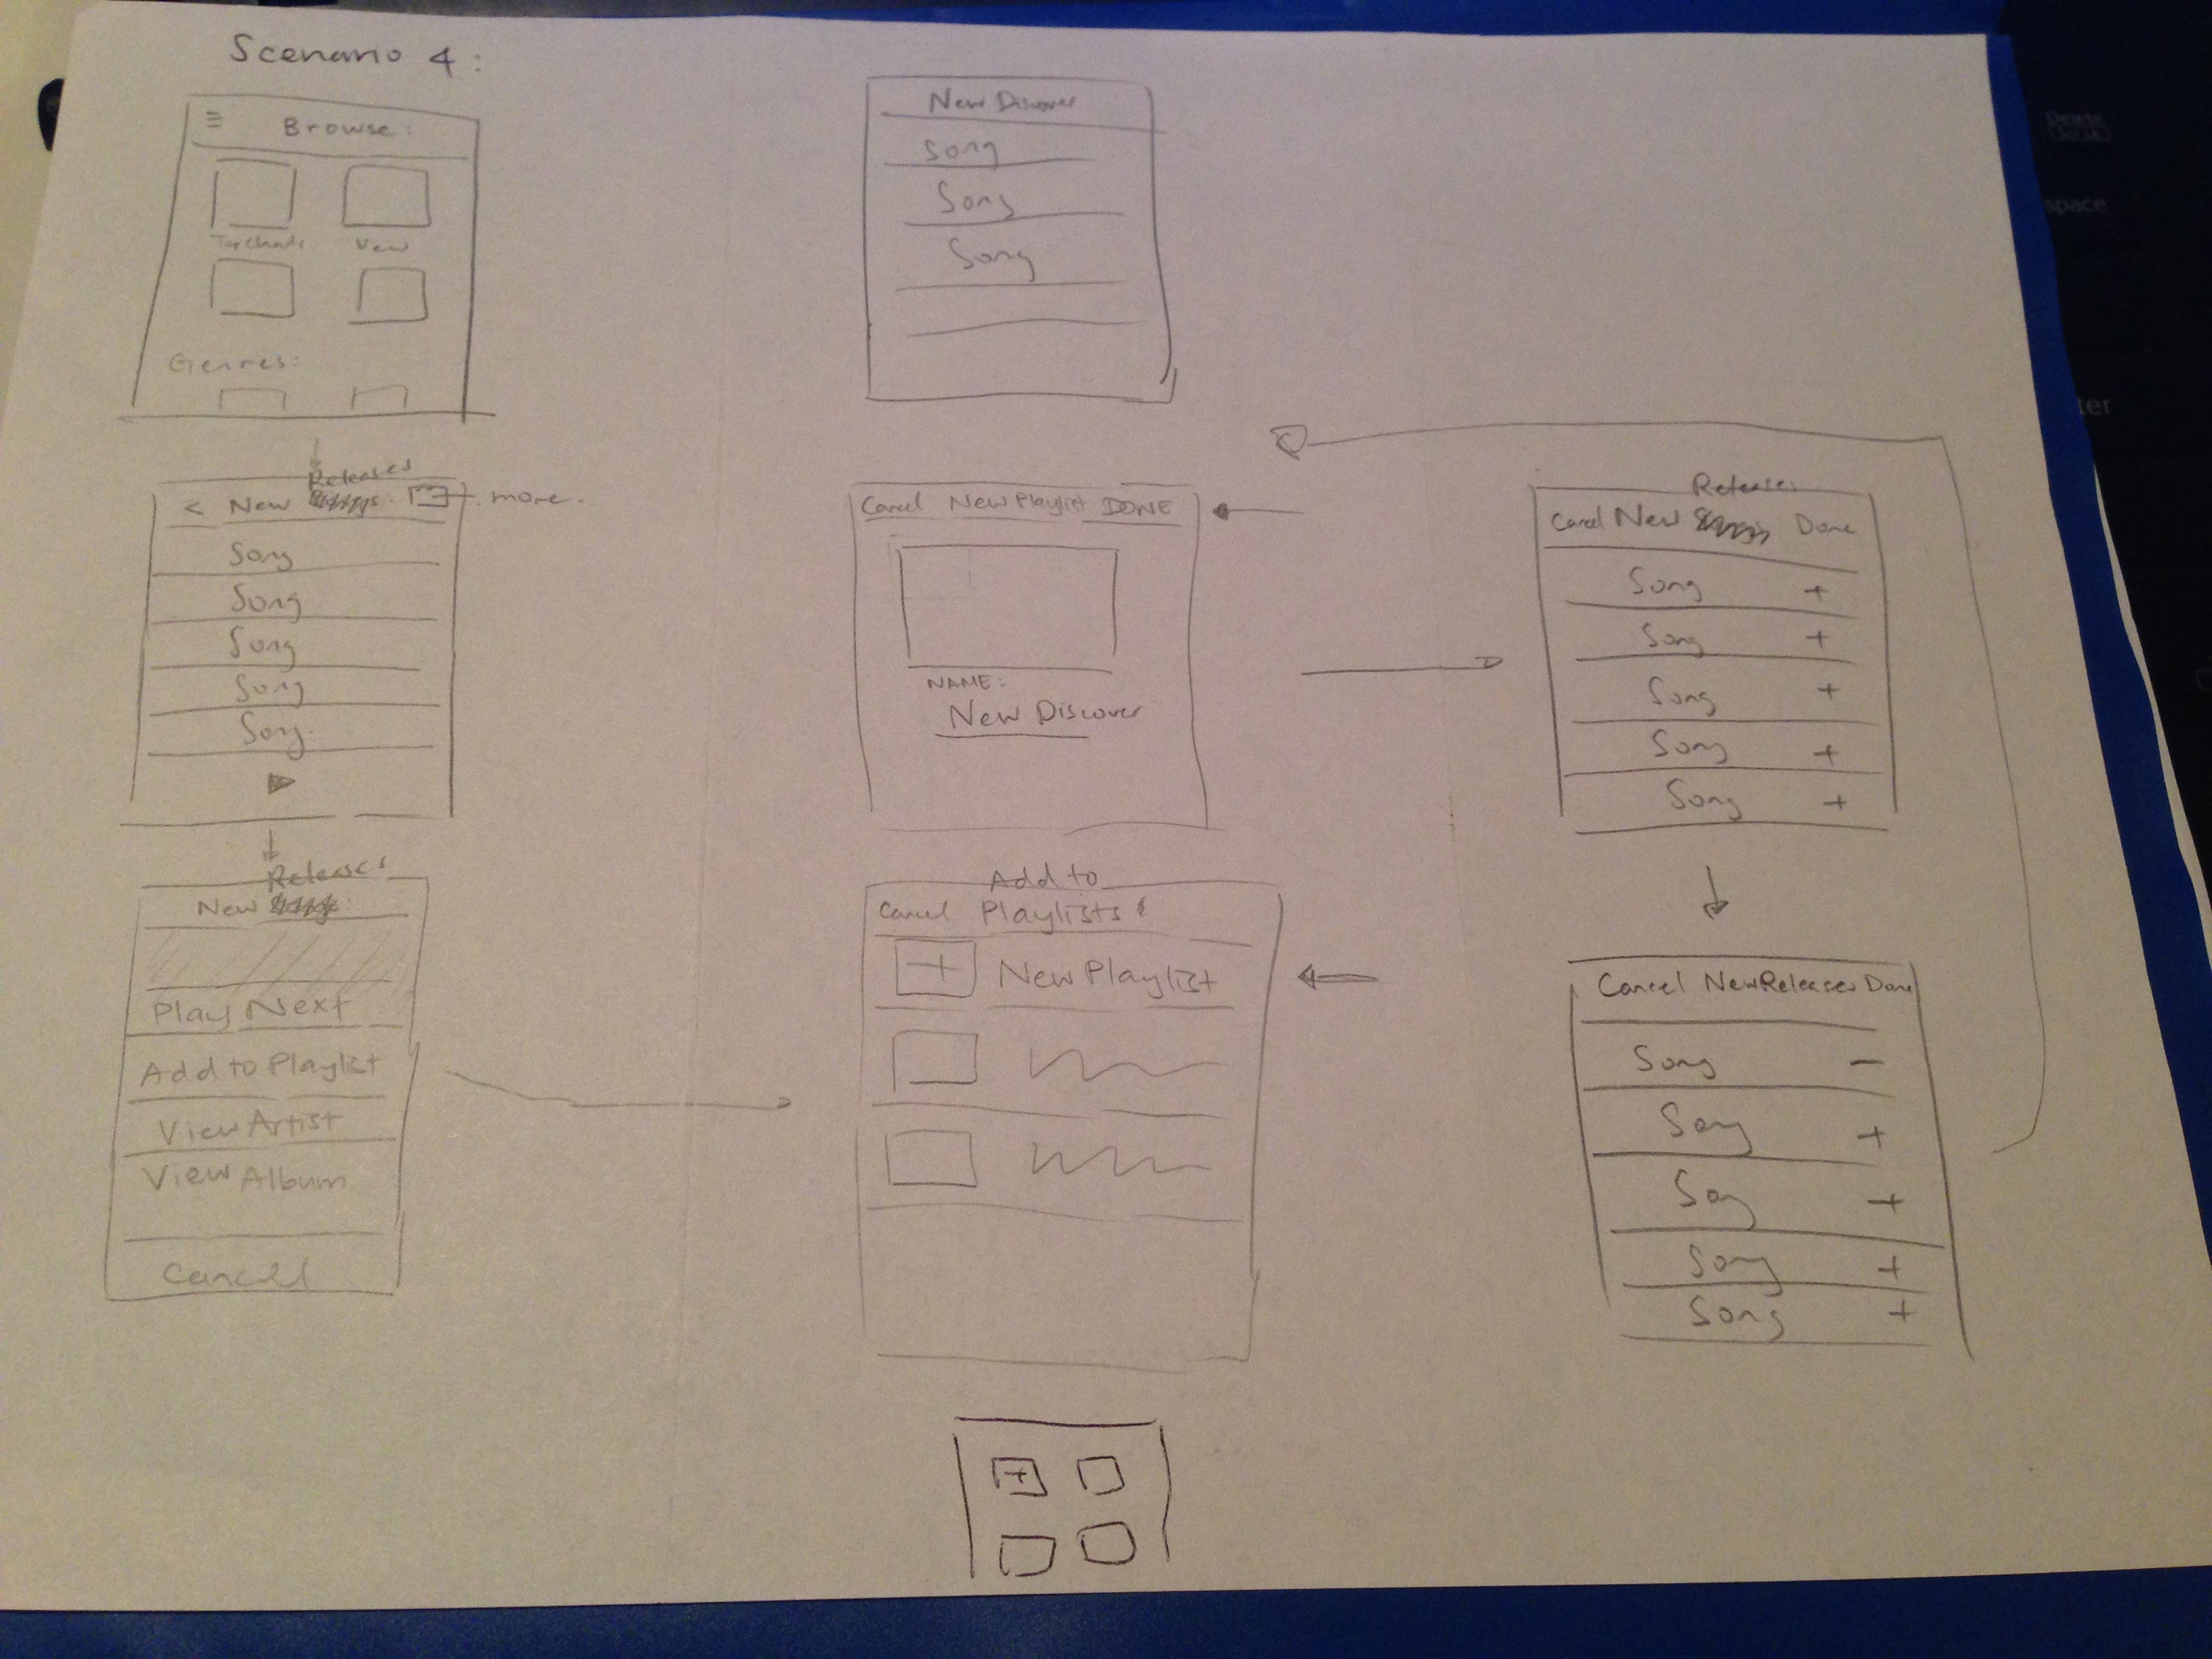 Scenario 4:
Browse:
Top Charts
Genres:
Releases
< New
more.
Song
Song
Song
Song
Song
Releases
New
Play Next
Add to Playlist
View Artist
View Album
Cancel
New Discover
Song
Song
Song
Cancel New Playlist DONE
NAME:
New Discover
Add to
Cancel Playlists
+ New Playlist
+
Releases
Cancel New Done
Song +
Song +
Song +
Song +
Song +
Cancel New Releases Done
Song -
Song +
Song +
Song +
Song +
Delete
space
ter